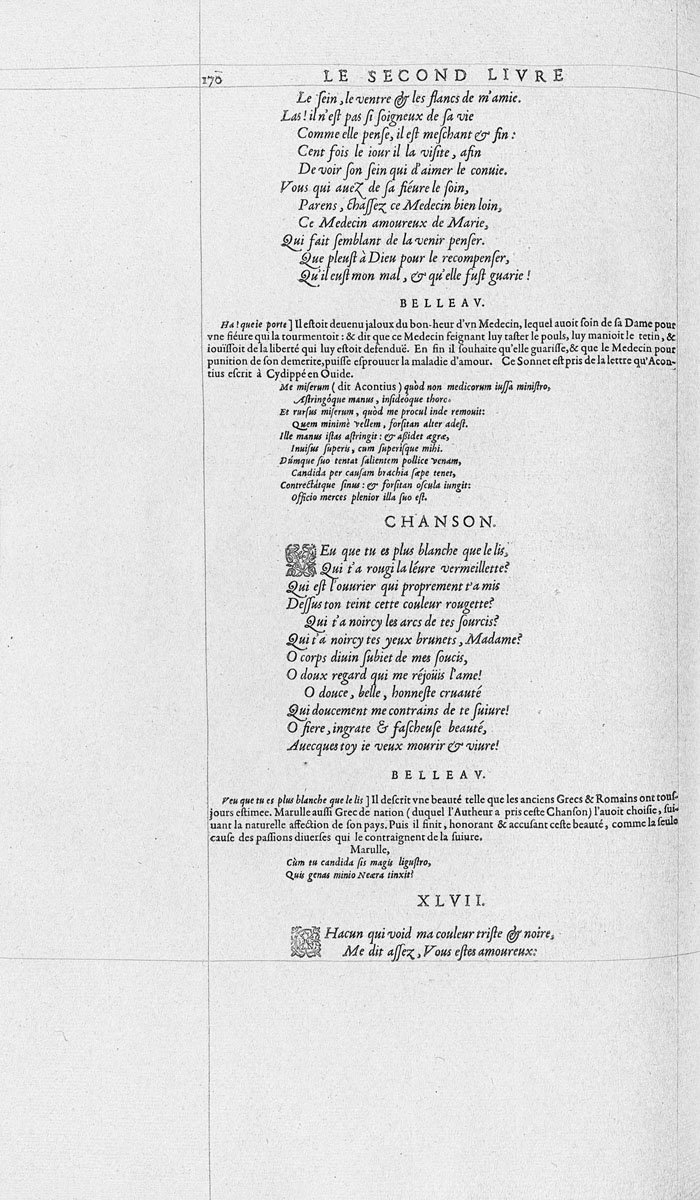 170 LE SECOND LIVRE
Le ſein, le ventre & les flancs de m'amie.
Las! il n'eſt pas ſi ſoigneux de ſa vie
Comme elle penſe, il eſt meſchant & fin:
Cent fois le iour il la viſite, afin
De voir ſon ſein qui d'aimer le conuie.
Vous qui auez de ſa fiéure le ſoin,
Parens, chaſſez ce Medecin bien loin,
Ce Medecin amoureux de Marie,
Qui fait ſemblant de la venir penſer.
Que pleuſt à Dieu pour le recompenſer,
Qu'il euſt mon mal, & qu'elle fuſt guarie!
BELLEAV.
Ha! que ie porte] Il eſtoit deuenu jaloux du bon-heur d'vn Medecin, lequel auoit ſoin de ſa Dame pour
vne fiéure qui la tourmentoit: & dit que ce Medecin feignant luy taſter le pouls, luy manioit le tetin, &
iouïſſoit de la liberté qui luy eſtoit defenduë. En fin il ſouhaite qu'elle guariſſe, & que le Medecin pour
punition de ſon demerite, puiſſe eſprouuer la maladie d'amour. Ce Sonnet eſt pris de la lettre qu'Acon-
tius eſcrit à Cydippé en Ouide.
Me miſerum (dit Acontius) quòd non medicorum iuſſa miniſtro,
Aſtringóque manus, inſideóque thoro.
Et rurſus miſerum, quòd me procul inde remouit:
Quem minimè vellem, forſitan alter adeſt.
Ille manus iſtas aſtringit: & aßidet ægræ,
Inuiſus ſuperis, cum ſuperíſque mihi.
Dúmque ſuo tentat ſalientem pollice venam,
Candida per cauſam brachia ſæpe tenet,
Contrectátque ſinus: & forſitan oſcula iungit:
Officio merces plenior illa ſuo eſt.
CHANSON.
VEu que tu es plus blanche que le lis,
Qui t'a rougi la léure vermeillette?
Qui eſt l'ouurier qui proprement t'a mis
Deſſus ton teint cette couleur rougette?
Qui t'a noircy les arcs de tes ſourcis?
Qui t'a noircy tes yeux brunets, Madame?
O corps diuin ſubiet de mes ſoucis,
O doux regard qui me réjoüis l'ame!
O douce, belle, honneſte cruauté
Qui doucement me contrains de te ſuiure!
O fiere, ingrate & faſcheuſe beauté,
Auecques toy ie veux mourir & viure!
BELLEAV.
Veu que tu es plus blanche que le lis] Il deſcrit vne beauté telle que les anciens Grecs & Romains ont touſ-
jours eſtimee. Marulle auſſi Grec de nation (duquel l'Autheur a pris ceſte Chanſon) l'auoit choiſie, ſui-
uant la naturelle affection de ſon pays. Puis il finit, honorant & accuſant ceſte beauté, comme la ſeule
cauſe des paſſions diuerſes qui le contraignent de la ſuiure.
Marulle,
Cùm tu candida ſis magis liguſtro,
Quis genas minio Neæra tinxit?
XLVII.
CHacun qui void ma couleur triſte & noire,
Me dit aſſez, Vous eſtes amoureux: